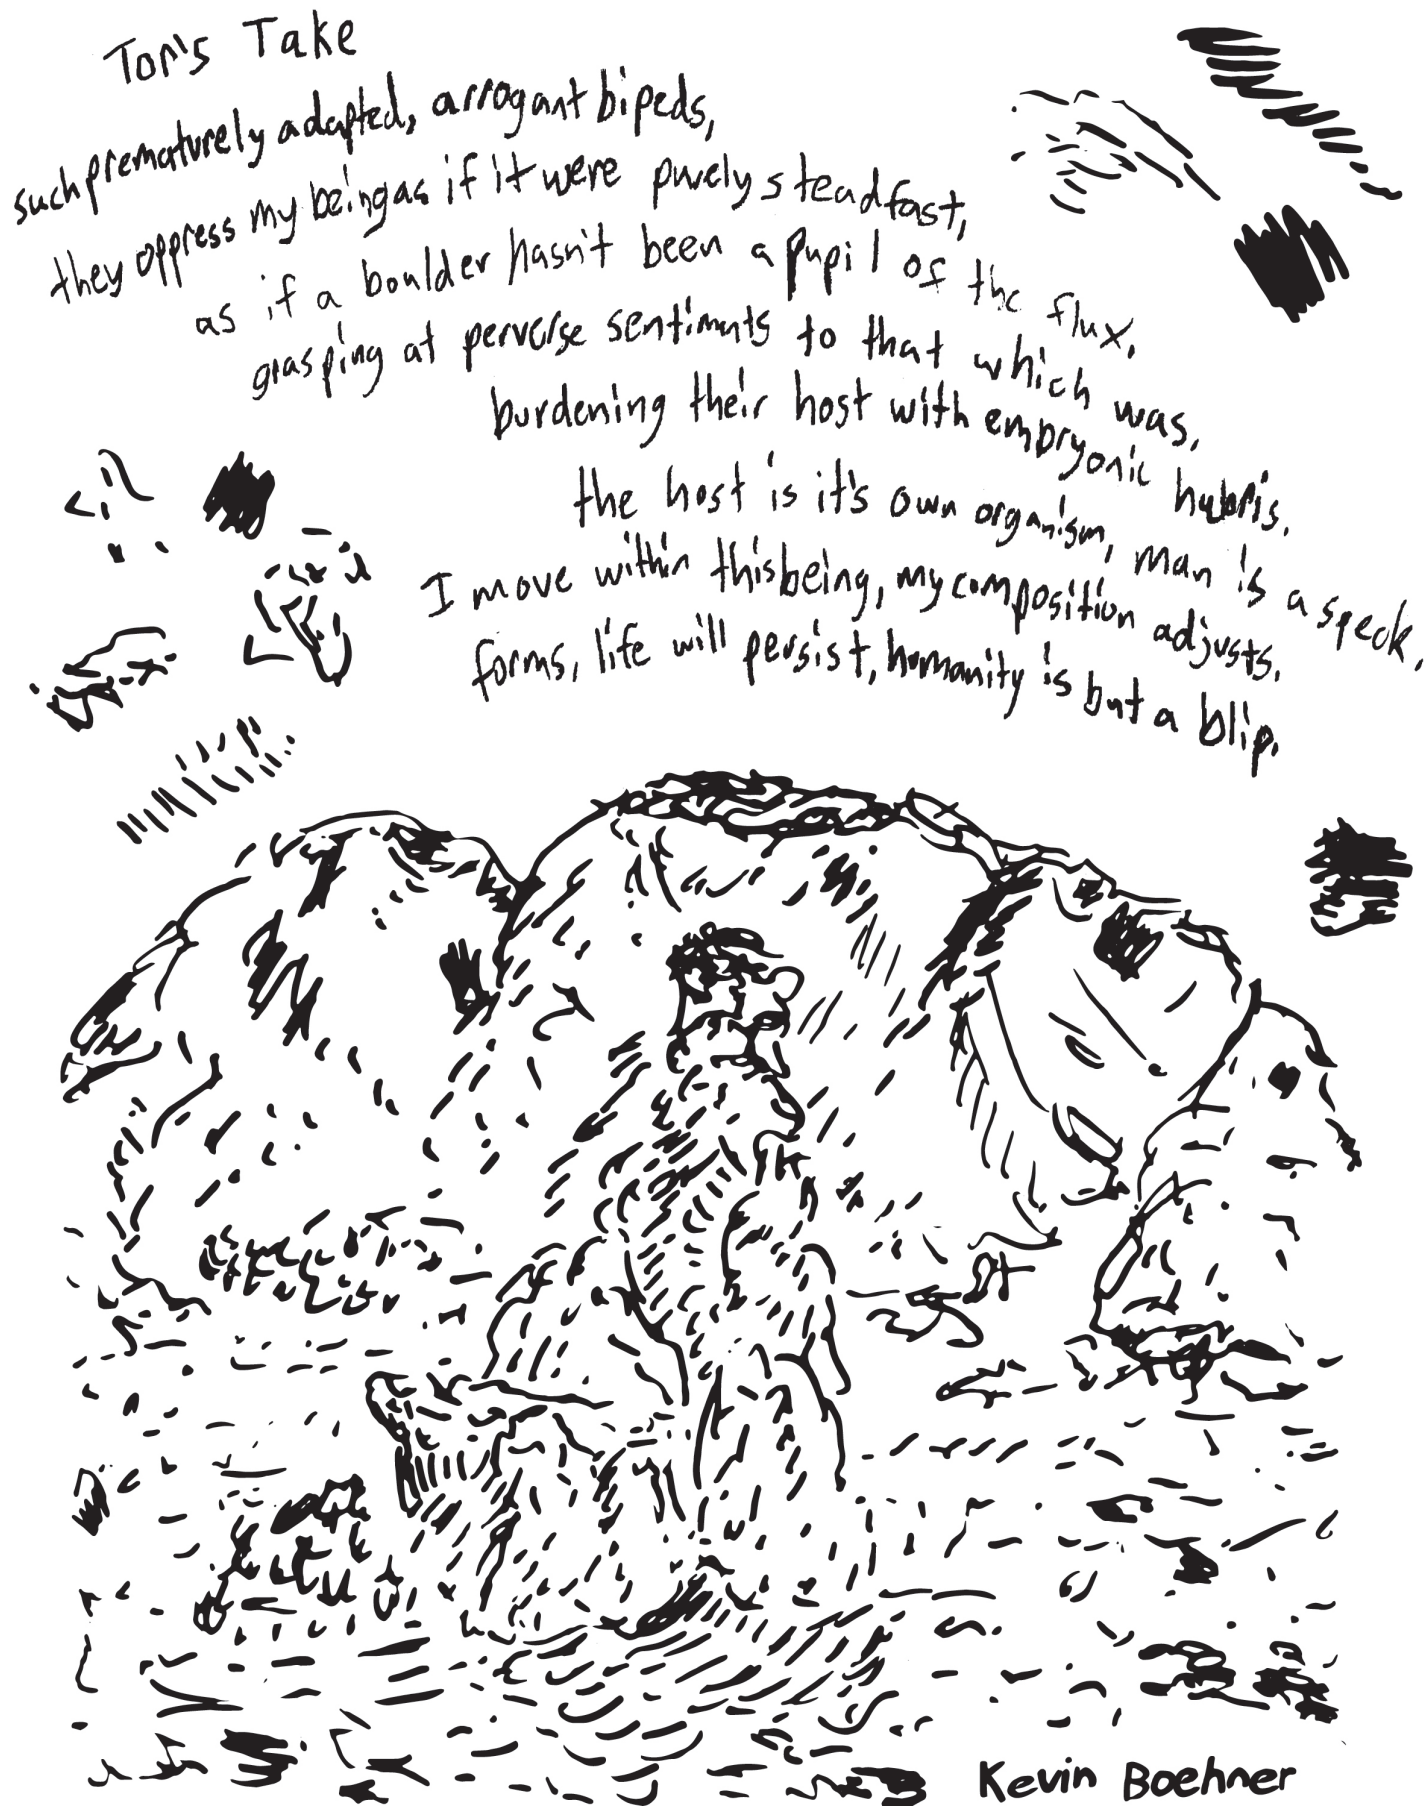 Tor's Take
such prematurely adapted, arrogant bipeds,
they oppress my being as if it were purely steadfast,
as if a boulder hasn't been a pupil of the flux,
grasping at perverse sentiments to that which was,
burdening their host with embryonic hubris.
the host is it's own organism, man is a speck,
I move within this being, my composition adjusts.
forms, life will persist, humanity is but a blip.
Kevin Boehner